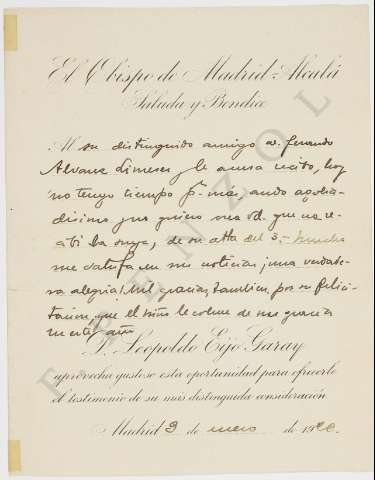 El Obispo de Madrid-Alcalá
Saluda y Bendice
Al su distinguido amigo D. Fernando
Alvarez Limeses, y le acusa recibo, hoy
no tengo tiempo pª más, ando agobia-
disimo y no quiero crea Vd. que no re-
cibi la suya, de su atta del 3.- mucho
me satisfacen sus noticias ¡una verdade-
ra alegria! Mil gracias, tambien, por su felici-
tacion, que el niño le colme de sus gracias
en este año
D. Leopoldo Eijo Garay
aprovecha gustoso esta oportunidad para ofrecerle
el testimonio de su más distinguida consideración
Madrid 9 de enero de 19
FERENZOL